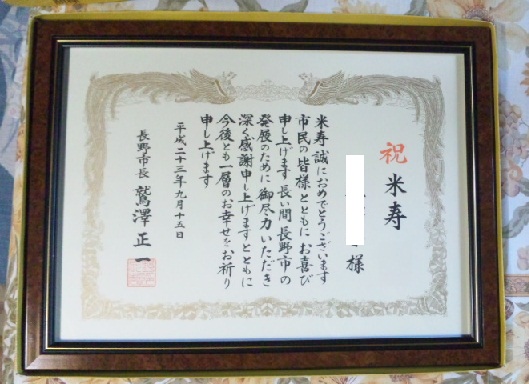 祝 米寿
様
米寿誠におめでとうございます
市民の皆様とともにお喜び
申し上げます長い間長野市の
発展のために御尽力いただき
深く感謝申し上げますとともに
今後とも一層のお幸せをお祈り
申し上げます
平成二十三年九月十五日
長野市長 鷲澤正一